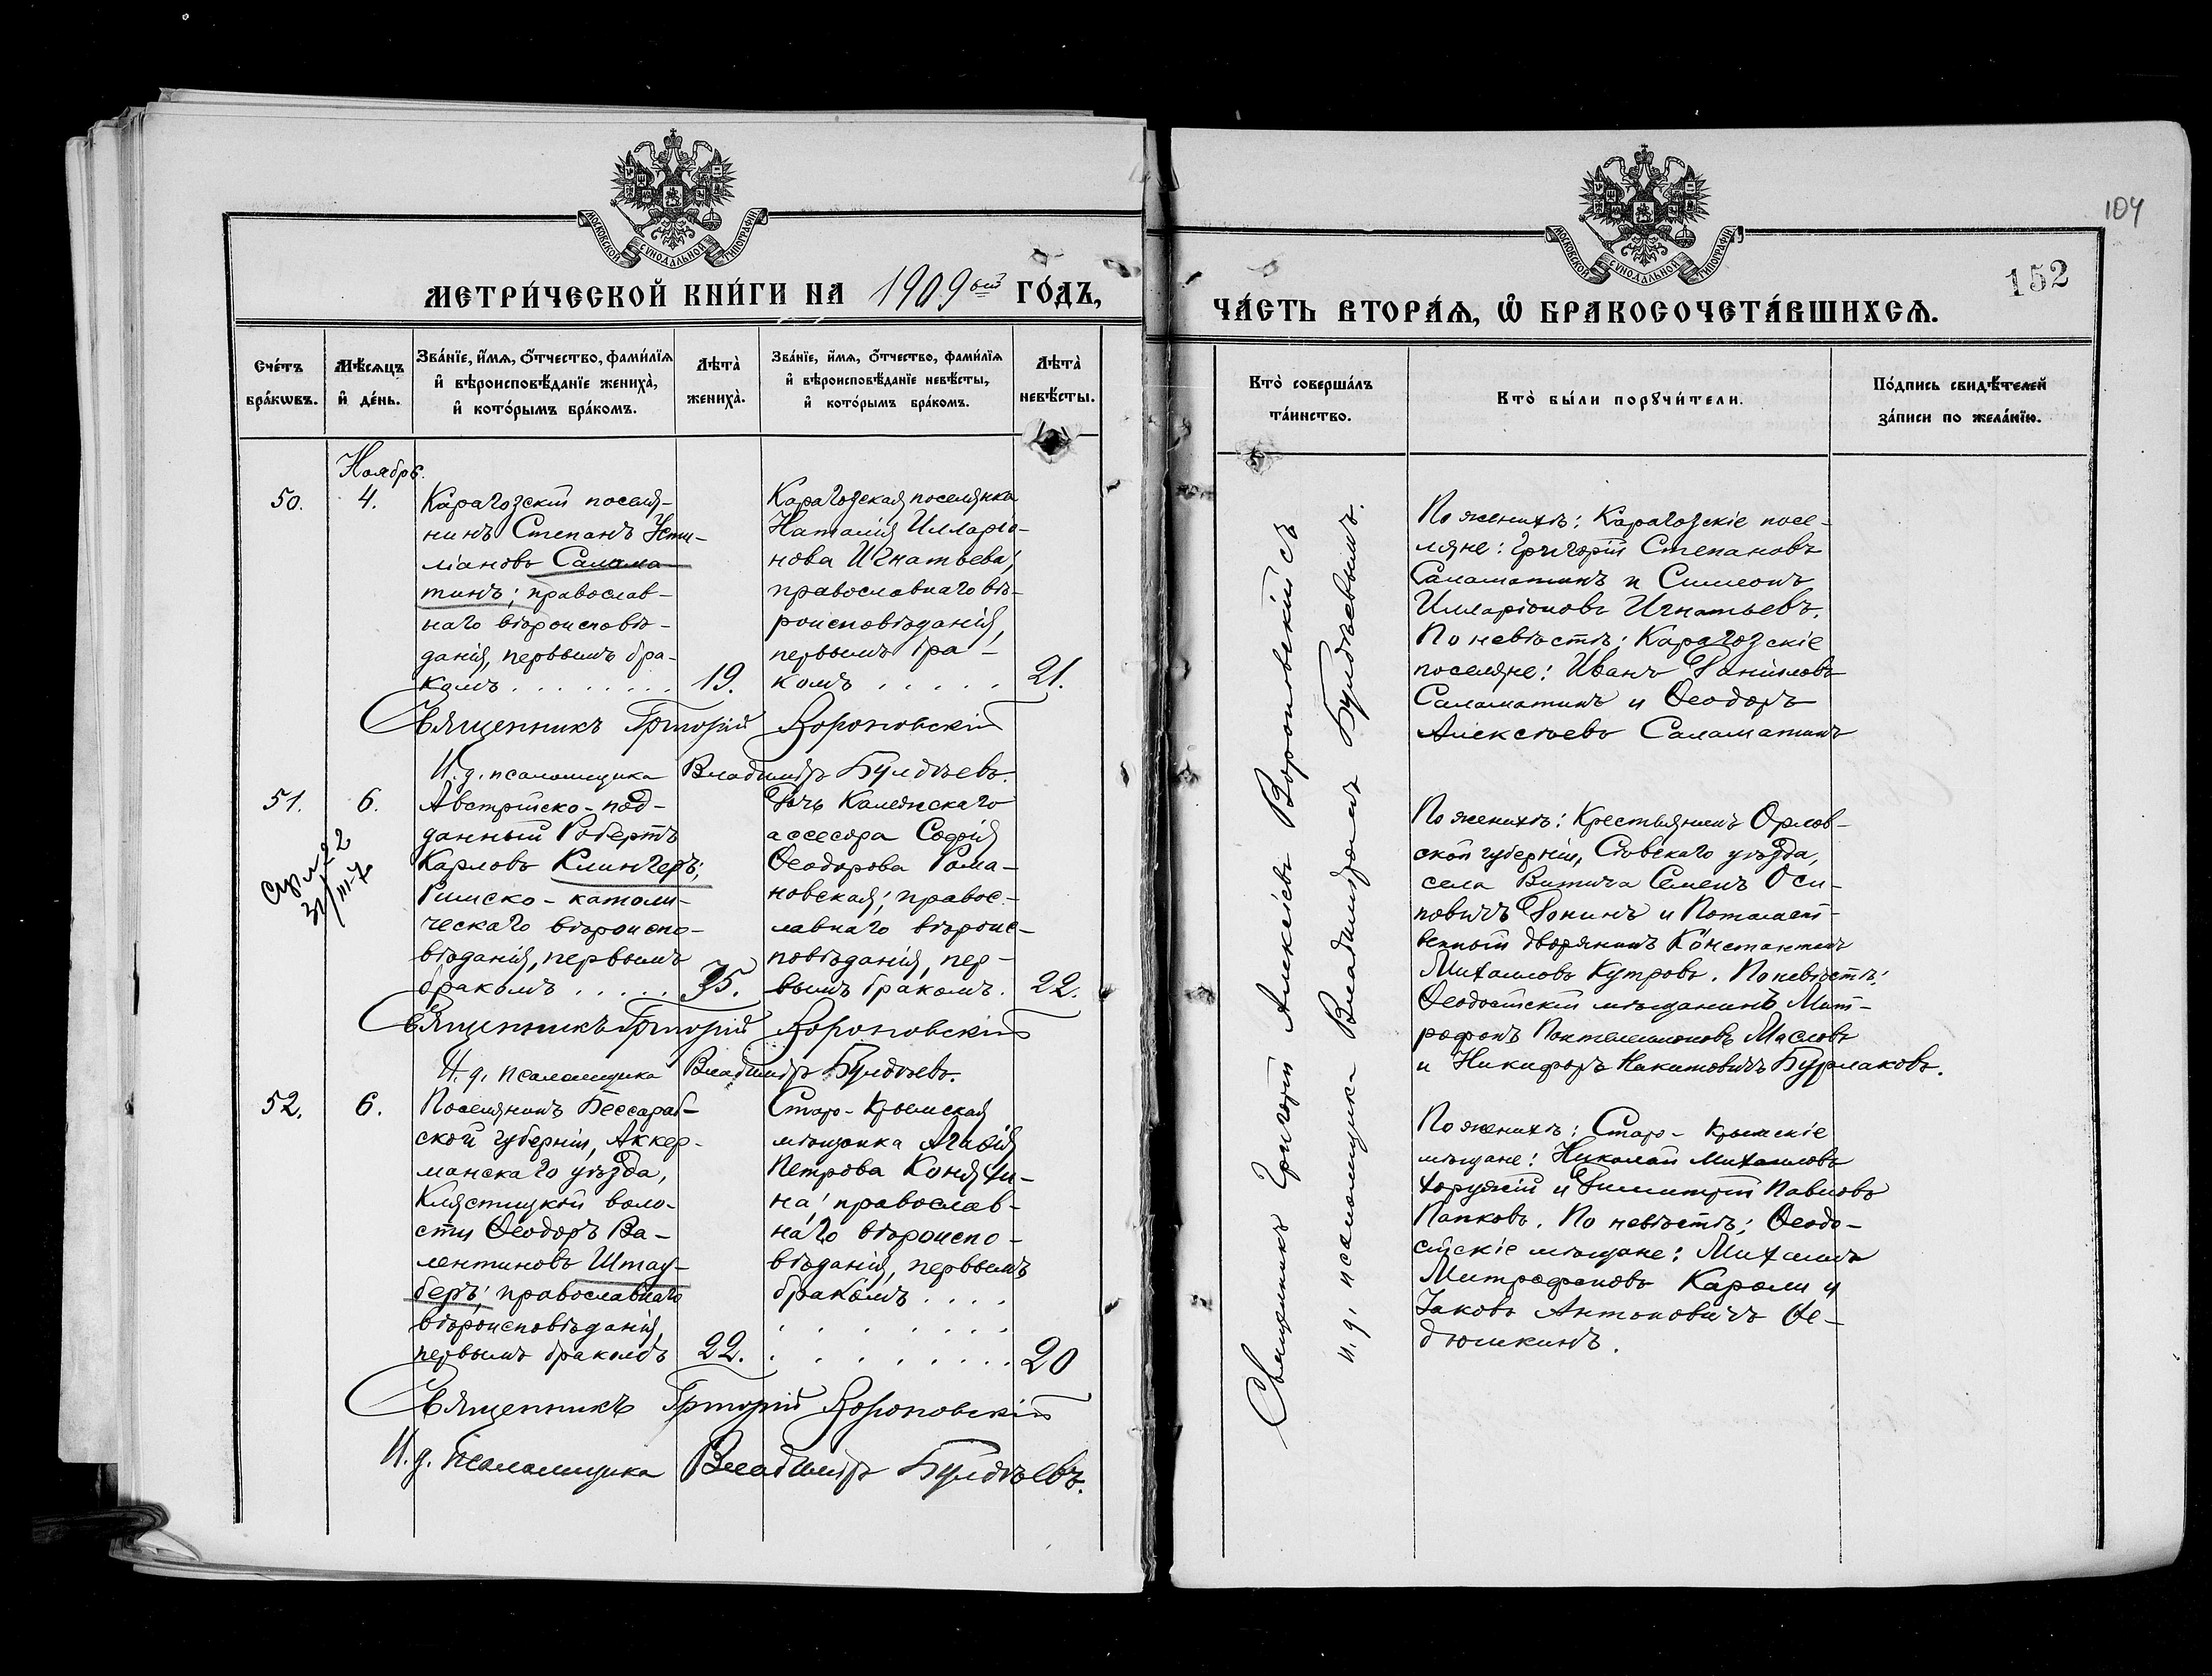 МОСКОВСКОЙ СѴНОДАЛЬНОЙ ТИПОГРАФІИ
МЕТРИ́ЧЕСКОЙ КНИ́ГИ НА 1909ый ГО́ДЪ,
Сче́тъ бра́кѡвъ.
Мѣ́сяцъ и҆ де́нь.
Зва́нїе, и҆́мѧ, ѻ҆́тчество, фами́лїѧ
и҆ вѣроисповѣ́данїе жениха̀,
и҆ кото́рымъ бра́комъ.
Лѣта̀ жениха̀.
Зва́нїе, и҆́мѧ, ѻ҆́тчество, фами́лїѧ
и҆ вѣроисповѣ́данїе невѣ́сты,
и҆ кото́рымъ бра́комъ.
Лѣта̀ невѣ́сты.
Ноябрь.
50.
4.
Карагозскій поселя-
нинъ Степанъ Усти-
міановъ Салама-
тинъ; православ-
наго вѣроисповѣ-
данія, первымъ бра-
комъ . . . . . . . .
19.
Карагозская поселянка
Наталія Илларіо-
нова Игнатьева,
православнаго вѣ-
роисповѣданія,
первымъ бра-
комъ . . . . .
21.
Священникъ Григорій Вороновскій
И. д. псаломщика Владиміръ Булдѣевъ.
51.
6.
Австрійско-под-
данный Робертъ
Карловъ Клингеръ;
Римско-католи-
ческаго вѣроиспо-
вѣданія, первымъ
бракомъ . . . . .
35.
Дочь Коллежскаго
ассесора Софія
Ѳеодорова Рома-
новская; правос-
лавнаго вѣроис-
повѣданія, пер-
вымъ бракомъ.
22.
Священникъ Григорій Вороновскій
И. д. псаломщика Владиміръ Булдѣевъ.
52.
6.
Поселянинъ Бессараб-
ской губерніи, Аккер-
манскаго уѣзда,
Клястицкой воло-
сти Ѳеодоръ Ва-
лентиновъ Штау-
беръ; православнаго
вѣроисповѣданія,
первымъ бракомъ
22.
Старо-Крымская
мѣщанка Агаѳія
Петрова Коняхи-
на; православ-
наго вѣроиспо-
вѣданія, первымъ
бракомъ . . . .
. . . . . . . .
. . . . . . . . .
20
Священникъ Григорій Вороновскій
И. д. псаломщика Владиміръ Булдѣевъ.
104
МОСКОВСКОЙ СѴНОДАЛЬНОЙ ТИПОГРАФІИ
152
ЧА́СТЬ ВТОРА́Ѧ, Ѽ БРАКОСОЧЕТА́ВШИХСѦ.
Кто̀ соверша́лъ
та́инство.
Кто̀ бы́ли порꙋчи́тели.
По́дпись свидѣ́телей
за́писи по жела́нїю.
Священникъ Григорій Алексѣевъ Вороновскій съ
и. д. псаломщика Владиміромъ Булдѣевымъ.
По женихѣ: Карагозскіе посе-
ляне: Григорій Степановъ
Саламатинъ и Симеонъ
Илларіоновъ Игнатьевъ.
По невѣстѣ: Карагозскіе
поселяне: Иванъ Даниловъ
Саламатинъ и Ѳеодоръ
Алексѣевъ Саламатинъ
По женихѣ: Крестьянинъ Орлов-
ской губерніи, Сѣвскаго уѣзда,
села Витича Семенъ Оси-
повичъ Донинъ и Потомст-
венный дворянинъ Константинъ
Михаиловъ Кутровъ. По невѣстѣ:
Ѳеодосійскій мѣщанинъ Мит-
рофанъ Пантелимоновъ Масловъ
и Никифоръ Никитовичъ Бурлаковъ.
По женихѣ: Старо-Крымскіе
мѣщане: Николай Михаиловъ
Хоружій и Димитрій Павловъ
Папковъ. По невѣстѣ: Ѳеодо-
сійскіе мѣщане: Михаилъ
Митрофановъ Кароли и
Іаковъ Антоновичъ Ѳе-
дюшкинъ.